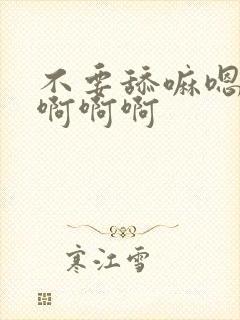 不要舔嘛嗯
啊啊啊
寒江雪